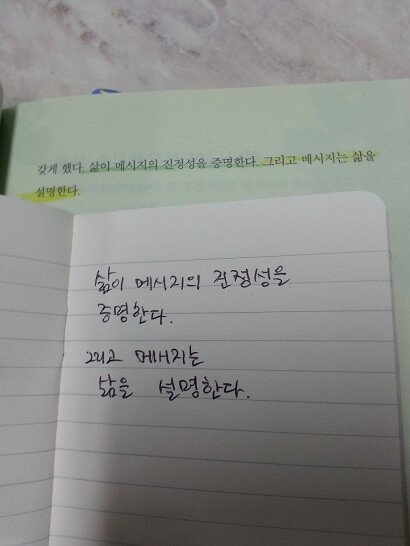 갖게 했다. 삶이 메시지의 진정성을 증명한다. 그리고 메시지는 삶을
설명한다.
삶이 메시지의 진정성을
증명한다.
그리고 메시지는
삶을 설명한다.